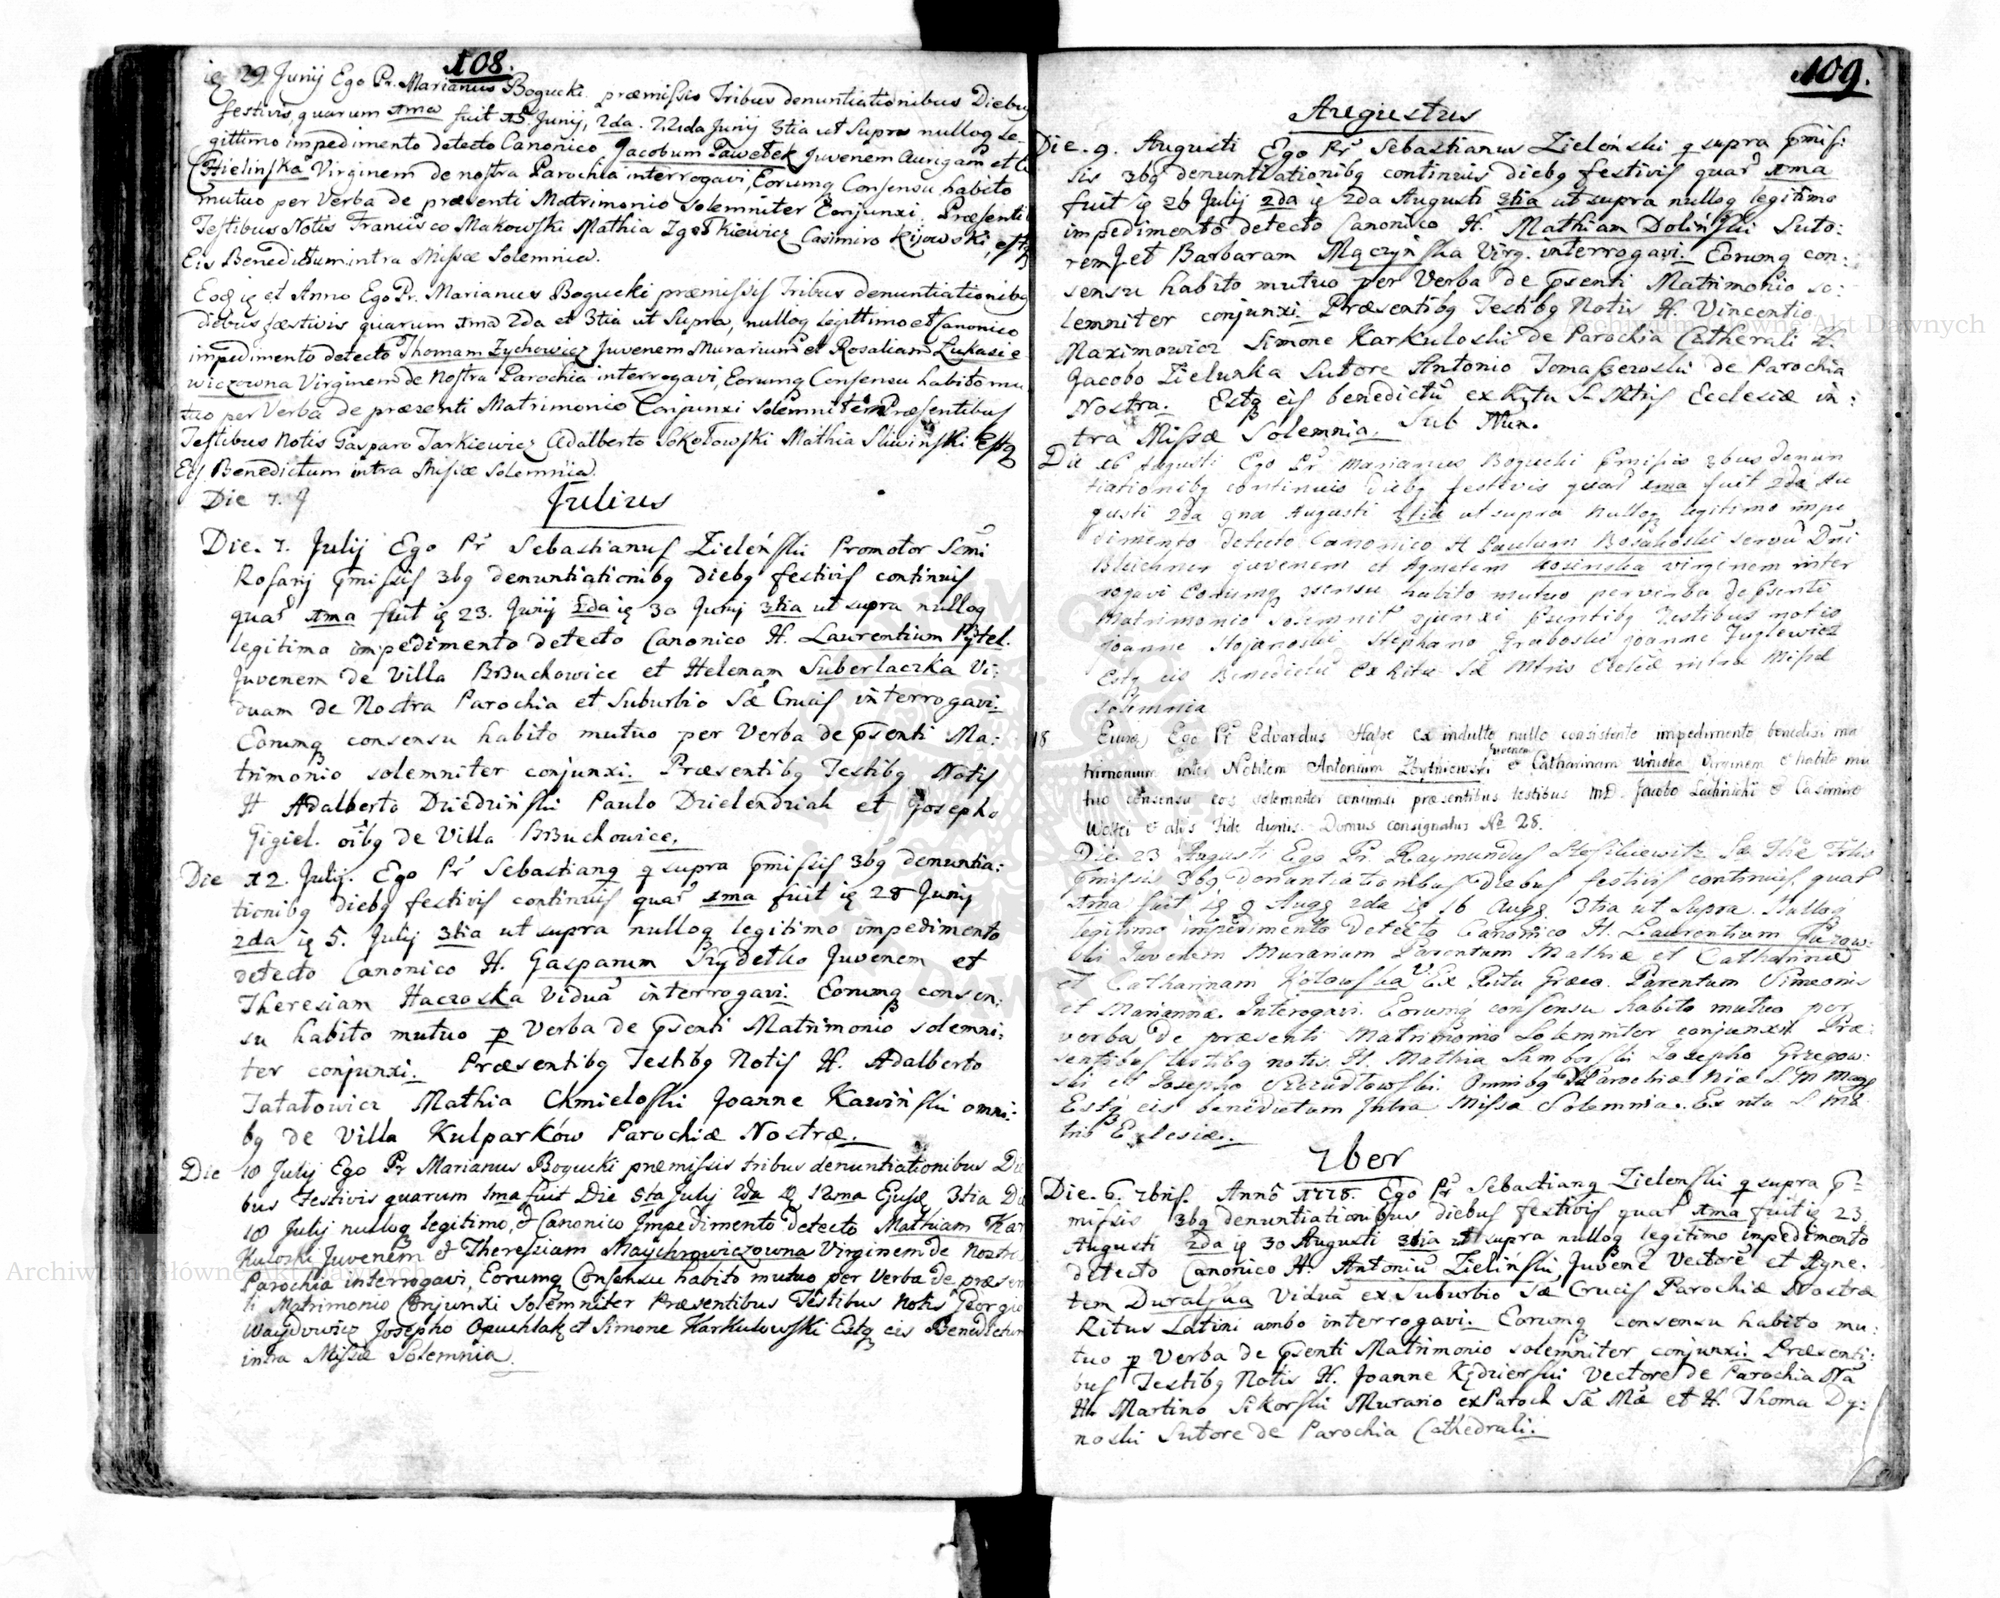 108.
ię 29 Junij Ego Pr. Marianus Bogucki præmissis Tribus denuntiationibus Diebus
festivis, quarum 1ma fuit 15 Junij, 2da. 22da Junij 3tia ut Supra nulloq le-
gittimo impedimento detecto Canonico Jacobum Pawełek Juvenem Aurigam et
Chielinska Virginem de nostra Parochia interrogavi, Eorumq Consensu habito
mutuo per Verba de præsenti Matrimonio Solemniter Conjunxi. Præsenti
Testibus Notis Francisco Makowski Mathia Zgołkiewicz Casimiro Kijowski, estq
Eis Benedictum intra Missæ Solemnia.
Eodē ię et Anno Ego Pr. Marianus Bogucki præmissis Tribus denuntiationibq
diebus fæstivis quarum 1ma 2da et 3tia ut Supra, nulloq legittimo et Canonico
impedimento detecto Thomam Zychowicz Juvenem Murarium et Rosaliam Łukasie
wiczowna Virginem de Nostra Parochia interrogavi, Eorumq Consensu habito mu
tuo per Verba de præsenti Matrimonio Conjunxi Solemniter Præsentibus
Testibus Notis Gasparo Tarkiewicz Adalberto Sokołowski Mathia Sliwinski Estq
Eis Benedictum intra Missæ Solemnia.
Die 7. J
Julius
Die. 7. Julij Ego Pr Sebastianus Zieleński Promotor Smi
Rosarij pmissis 3bq denuntiationibq diebq festivis continuis
quar 1ma fuit ię 23. Junij 2da ię 30 Junij 3tia ut supra nulloq
legitima impedimento detecto Canonico H. Laurentium Pytel.
Juvenem de Villa BrBuchowice et Helenam Suberlaczka Vi:
duam de Nostra Parochia et Suburbio Sæ Crucis interrogavi.
Eorumq consensu habito mutuo per Verba de psenti Ma:
trimonio solemniter conjunxi. Præsentibq Testibq Notis
H Adalberto Dziedziński Paulo Dzielendziak et Josepho
Gigiel. oībq de Villa BrBuchowice.
Die 12. Julij. Ego Pr Sebastianq q supra pmissis 3bq denuntia:
tionibq diebq festivis continuis quar 1ma fuit ię 28 Junij
2da ię 5. Julij 3tia ut supra nulloq legitimo impedimento
detecto Canonico H. Gasparum Skydełko Juvenem et
Theresiam Haczoska Viduā interrogavi. Eorumq consen:
su habito mutuo p Verba de psenti Matrimonio solemni:
ter conjunxi. Præsentibq Testibq Notis H. Adalberto
Tatałowicz Mathia Chmieloski Joanne Kawiński omni:
bq de Villa Kulparków Parochiæ Nostræ.
Die 18 Julij Ego Pr Marianus Bogucki præmissis tribus denuntiationibus Die
bus Festivis quarum 1ma fuit Die 5ta Julij 2da ię 12ma Ejusq 3tia Die
18 Julij nulloq legitimo, et Canonico Impedimento detecto Mathiam Kar
Kuloski Juvenem et Theresiam Maychrowiczowna Virginem de Nostr
Parochia interrogavi, Eorumq Consensu habito mutuo per Verba de præsen
ti Matrimonio Conjunxi Solemniter Præsentibus Testibus Notis Georgio
Waydowicz Josepho Opuchlak et Simone Karkulowski Estq eis Benedictum
intra Missæ Solemnia.
109.
Augustus
Die. 9. Augusti Ego Pr Sebastianus Zieleński q supra pmis:
sis 3bq denuntiationibq continuis diebq festivis quar 1ma
fuit ię 26 Julij 2da ię 2da Augusti 3tia ut supra nulloq legitimo
impedimento detecto Canonico H. Mathiam Doliński Suto:
rem et Barbaram Mączyńska Virg. interrogavi. Eorumq con:
sensu habito mutuo per Verba de psenti Matrimonio so:
lemniter conjunxi. Præsentibq Testibq Notis H. Vincentio
Maximowicz Simone Karkuloski de Parochia Catherali H.
Jacobo Zielunka Sutore Antonio Tomaszeroski de Parochia
Nostra. Estq eis benedictū ex Ritu S. Mtris Ecclesiæ in:
tra Missæ Solemnia. Sub Nūn.
Die 16 Augusti Ego Pr Marianus Bogucki pmissis 3bus denun
tiationibq continuis diebq festivis quar 1ma fuit 2da Au
gusti 2da 9na Augusti 3tia ut supra nulloq legitimo impe
dimento detecto Canonico H Paulum Bosakoski servū Dni
Bleichner juvenem et Agnetem Kosinska virginem inter
rogavi Eorumq nsensu habito mutuo per verba de psenti
Matrimonio Solemnit njunxi psentibq Testibus notis
Joanne Stojanoski Stephano Graboski Joanne Juglewicz
Estq eis Benedictū Ex Ritu Sæ Mtris Ecclæ intra Missæ
Solemnia
18 Eusq Ego Pr Edvardus Hape ex indulto nullo consistente impedimento benedixi ma
trimonium inter Nobilem Antonium Zbytniewski juvenem et Catharinam Wnuska Virginem et habito mu
tuo consensu eos solemniter coniunxi præsentibus testibus MD. Jacobo Lachnicki et Casimiro
Wolfei et aliis Fide dignis. Domus consignatus No 28.
Die 23 Augusti Ego Pr. Raymundus Stesikiewitz Sæ Thē
pmissis 3bq denuntiationibus diebus festivis continuis. quar
1ma fuit ię 9 Augq 2da ię 16 Augq. 3tia ut Supra. Nulloq
legitimo impedimento detecto Canonico H. Laurentium Gurow:
ski Juvenem Murarium Parentum Mathiæ et Catharinæ
et Catharinam Kotowska Ex Ritu Græco. Parentum Simeonis
et Mariannæ. Interogavi. Eorumq consensu habito mutuo per
verba de præsenti Matrimonio Solemniter conjunxi Præ:
sentibus testibq notis. H. Mathia Samborski Josepho Grzegow:
ski et Josepho Szczudłowski. Omnibq Parochiæ Næ S. M Mag
Estq eis benedictum Intra Missa Solemnia. Ex ritu S. Ma
tris Ecclesiæ.
7ber
Die. 6. 7bris. Annō 1778. Ego Pr Sebastianq Zielenski q supra p-
missis 3bq denuntiationibus diebus festivis quar 1ma fuit ię 23
Augusti 2da ię 30 Augusti 3tia ut supra nulloq legitimo impedimento
detecto Canonico H. Antoniū Zieliński Juvenē Vectorē et Agne.
tem Duralska Viduā ex Suburbio Sæ Crucis Parochiæ Nostræ
Ritus Latini ambo interrogavi. Eorumq consensu habito mu:
tuo p Verba de psenti Matrimonio solemniter conjunxi. Præsenti:
bus Testibq Notis H. Joanne Kędzierski Vectore de Parochia Nā
H. Martino Sikorski Murario ex Paroch Sæ Mæ et H. Thoma Dy:
noski Sutore de Parochia Cathedrali.